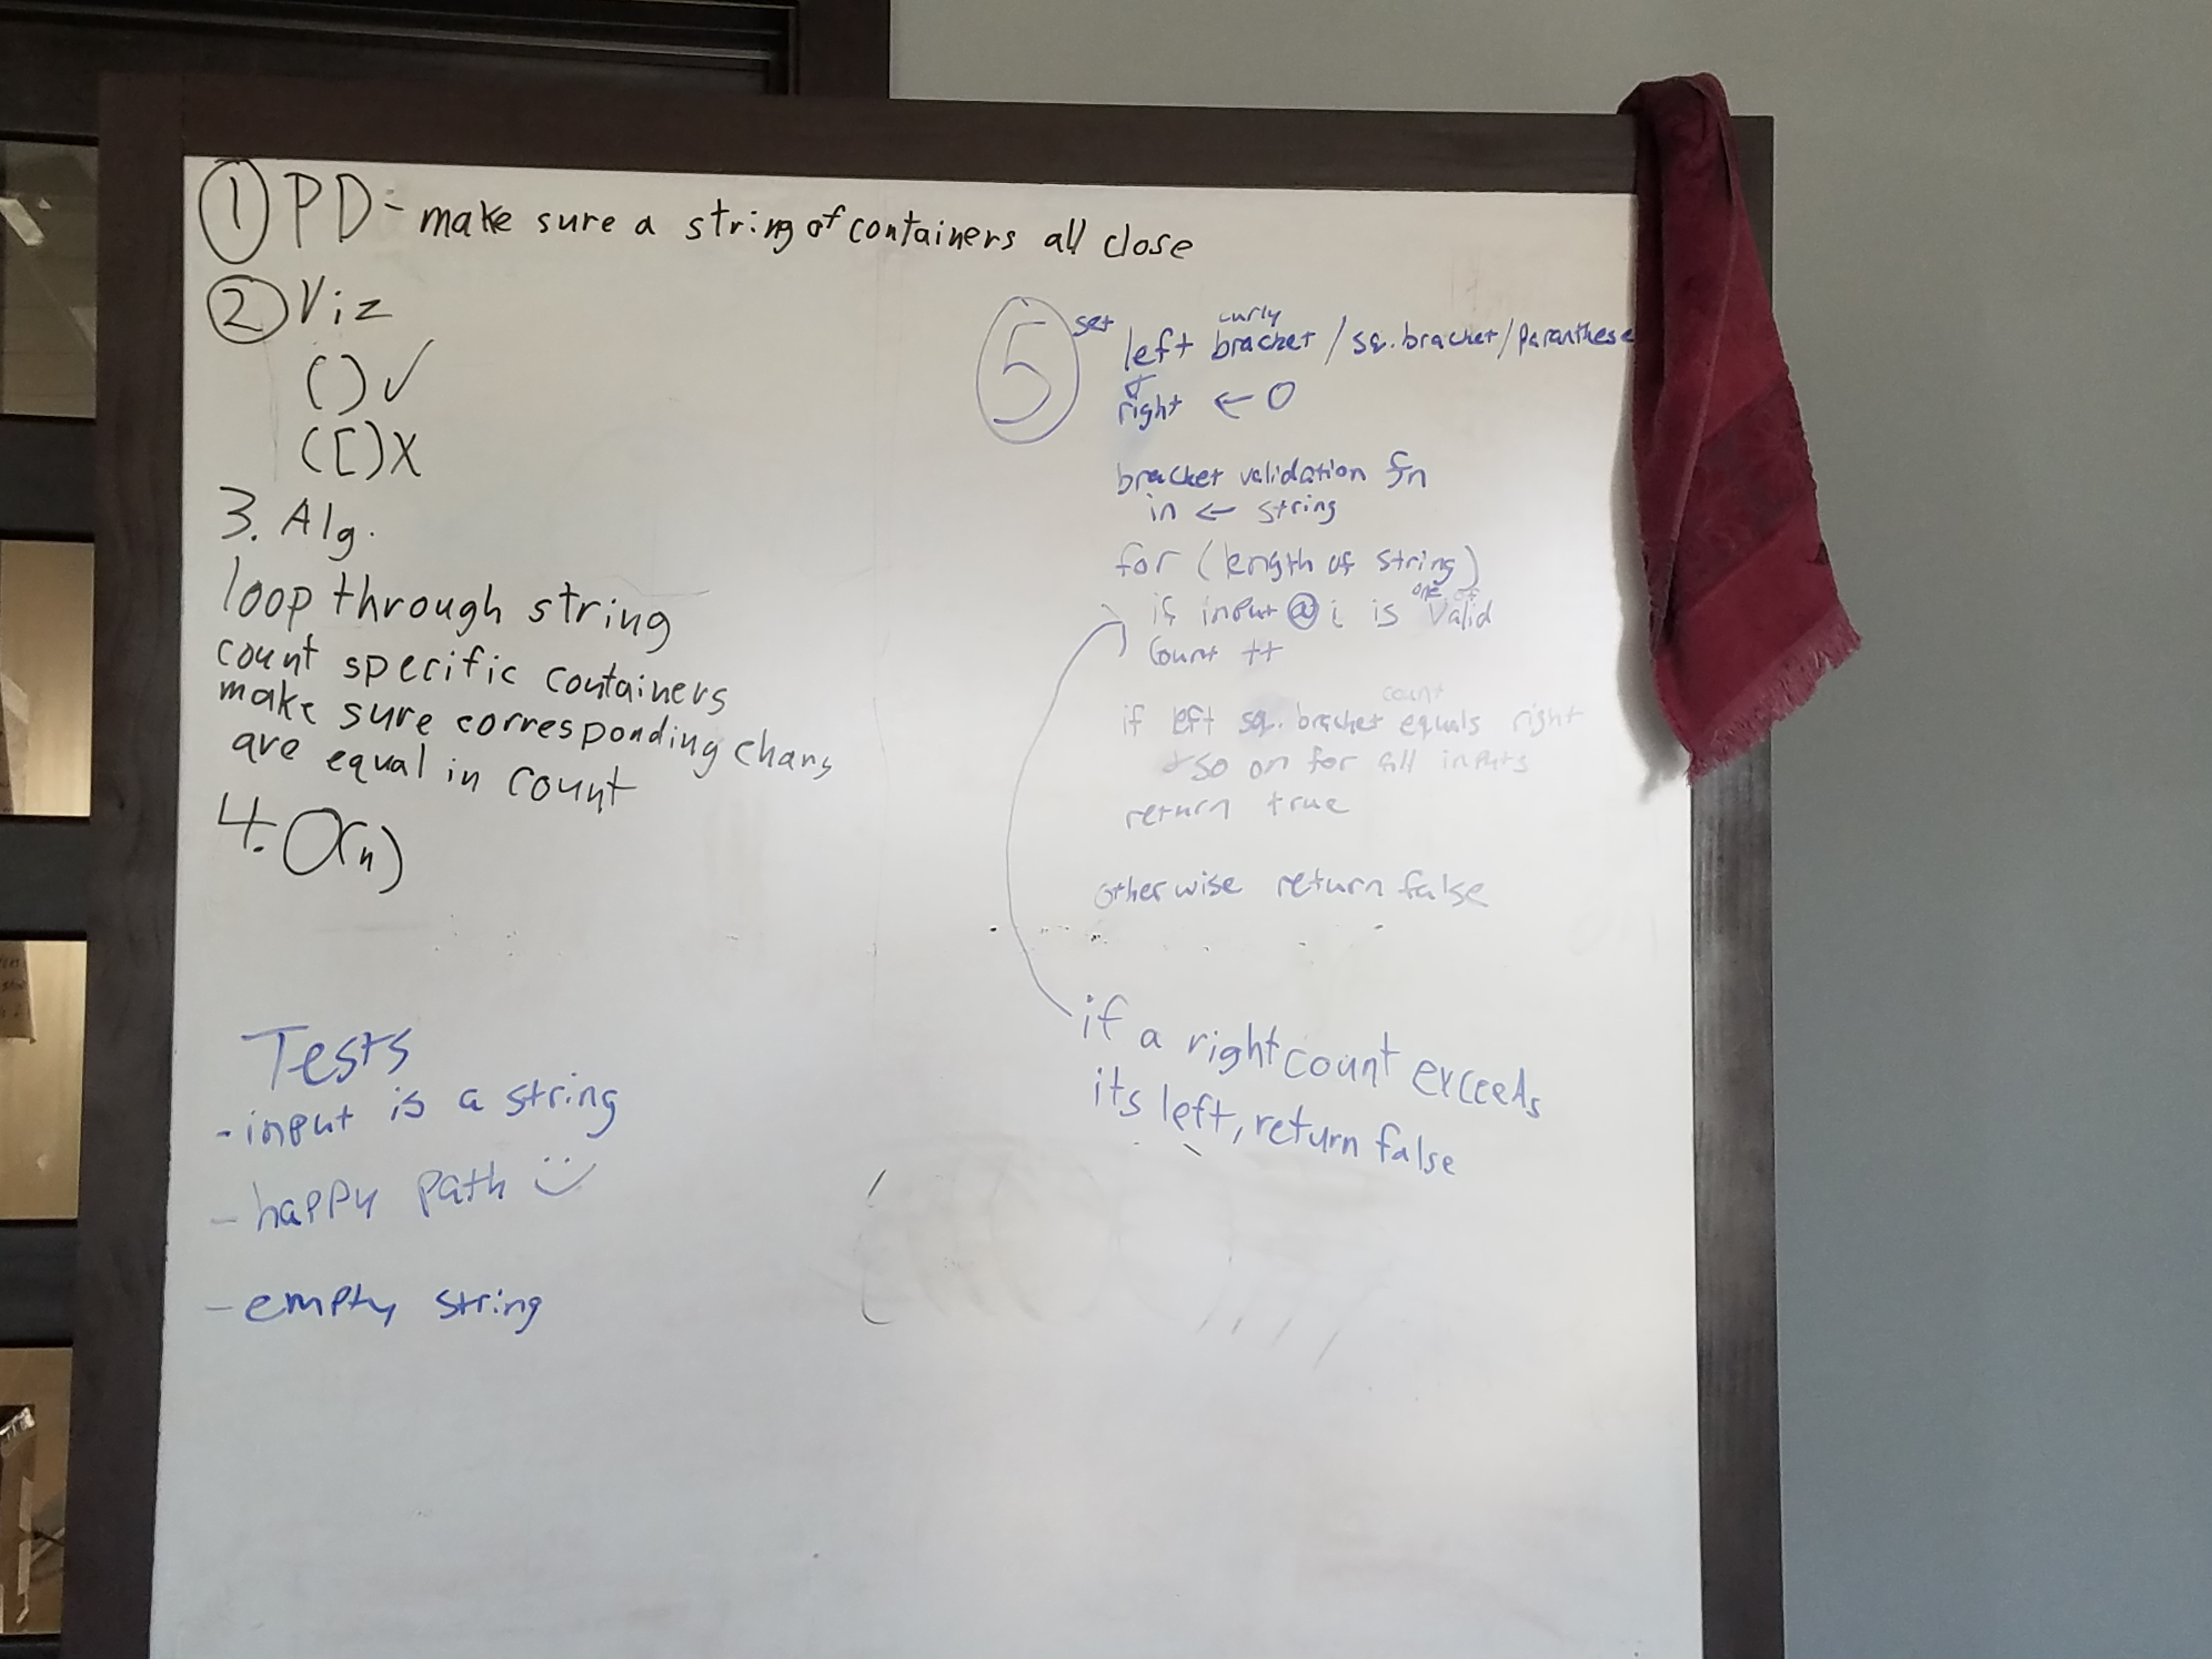 ① PD - make sure a string of containers all close
② Viz
() ✓
([) X
3. Alg.
loop through string
count specific containers
make sure corresponding chars
are equal in count
4. O(n)
Tests
- input is a string
- happy path
- empty string
⑤ set left curly bracket / sq. bracket / paranthese
& right ← 0
bracket validation fn
in ← string
for (length of string)
if input @ i is one of valid
count ++
if left sq. bracket count equals right
& so on for all inputs
return true
otherwise return false
if a right count exceeds
its left, return false